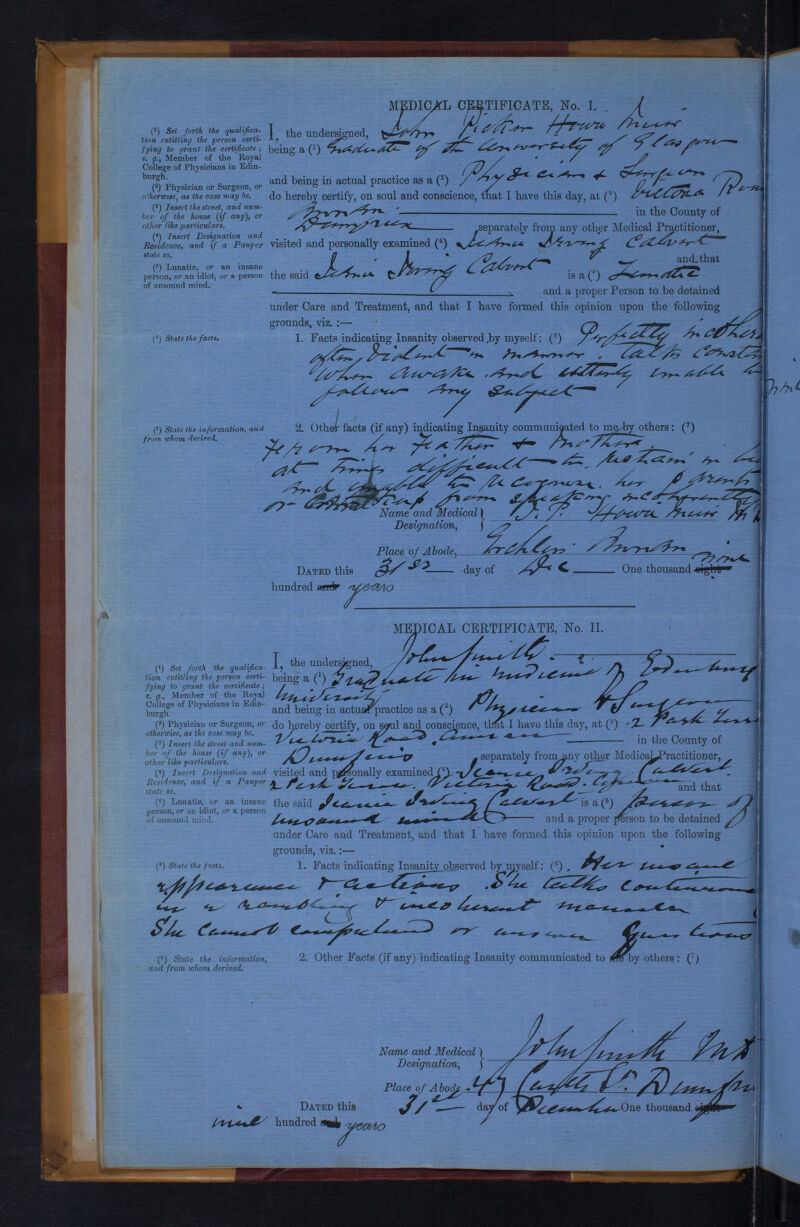 MEDICAL CERTIFICATE, No. I.
(¹) Set forth the qualifica-
tion entitling the person certi-
fying to grant the certificate;
e. g., Member of the Royal
College of Physicians in Edin-
burgh.
(²) Physician or Surgeon, or
otherwise, as the case may be.
(³) Insert the street, and num-
ber of the house (if any), or
other like particulars.
(⁴) Insert Designation and
Residence, and if a Pauper
state so.
(⁵) Lunatic, or an insane
person, or an idiot, or a person
of unsound mind.
I, the undersigned, John Howe Muir
being a (¹) Graduate of the University of Glasgow
and being in actual practice as a (²) Physician & Surgeon
do hereby certify, on soul and conscience, that I have this day, at (³) Victoria
Annan in the County of
Dumfries separately from any other Medical Practitioner,
visited and personally examined (⁴) Jeanie Irving Calvert
and that
the said Jeanie Irving Calvert is a (⁵) Lunatic
and a proper Person to be detained
under Care and Treatment, and that I have formed this opinion upon the following
grounds, viz.:—
(⁶) State the facts.
1. Facts indicating Insanity observed by myself: (⁶) Perfectly
often violent in manner. talks
when awake and utterly unable to
follow any subject
(⁷) State the information, and
from whom derived.
2. Other facts (if any) indicating Insanity communicated to me by others: (⁷)
From her Father & Mother
at times difficult to restrain in
and unable to recognise her parents
or from speaking incoherently
Name and Medical
Designation,
J. P. Howe Muir
Place of Abode, Annan
DATED this 31st day of Dec One thousand eight nine
hundred and years
MEDICAL CERTIFICATE, No. II.
(¹) Set forth the qualifica-
tion entitling the person certi-
fying to grant the certificate;
e. g., Member of the Royal
College of Physicians in Edin-
burgh.
(²) Physician or Surgeon, or
otherwise, as the case may be.
(³) Insert the street and num-
ber of the house (if any), or
other like particulars.
(⁴) Insert Designation and
Residence, and if a Pauper
state so.
(⁵) Lunatic, or an insane
person, or an idiot, or a person
of unsound mind.
I, the undersigned, John Smith
being a (¹) Graduate in medicine of
University
and being in actual practice as a (²) Physician & Surgeon
do hereby certify, on soul and conscience, that I have this day, at (³) 2 Park
Victoria Road. Annan in the County of
Dumfries separately from any other Medical Practitioner,
visited and personally examined (⁴) Jeanie Irving Calvert.
2 Park Terrace. Victoria Road. Annan and that
the said Jeanie Irving Calvert is a (⁵) person of
unsound mind and a proper person to be detained
under Care and Treatment, and that I have formed this opinion upon the following
grounds, viz.:—
(⁶) State the facts.
1. Facts indicating Insanity observed by myself: (⁶). Her insane
appearance & actions. She talks
in a rambling & incoherent manner
She cannot comprehend or answer questions
(⁷) State the information,
and from whom derived.
2. Other Facts (if any) indicating Insanity communicated to me by others: (⁷)
Name and Medical
Designation,
John Smith MD
Place of Abode 47 Castle St.
DATED this 31st day of December One thousand eight
nine hundred and years